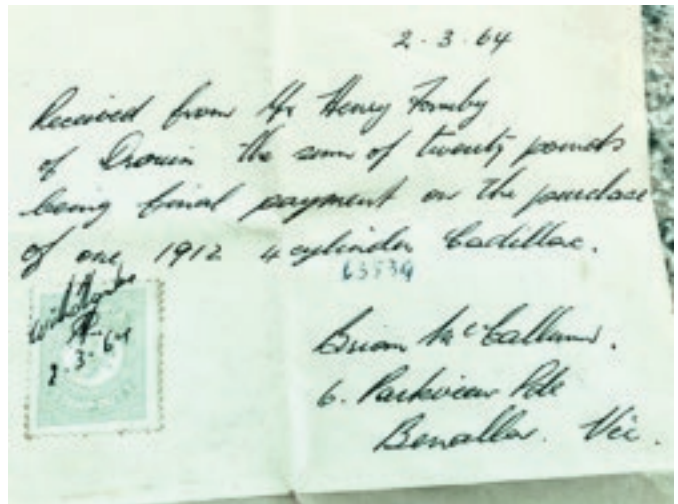 2.3.64
Received from Mr Henry Formby
of Drouin the sum of twenty pounds
being final payment on the purchase
of one 1912 4 cylinder Cadillac.
63539
2.3.64
Brian McCallum.
6. Parkview Pde
Benalla. Vic.